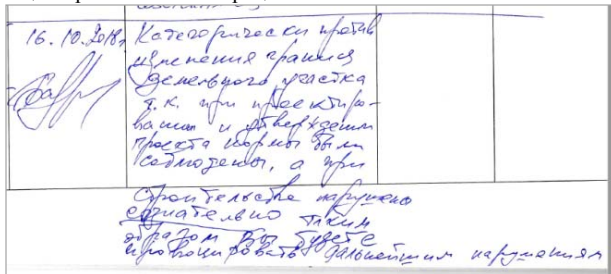 16.10.2018г. Категорически против
изменения границ
земельного участка
т.к. при проектиро-
вании и утверждении
проекта нормы были
соблюдены, а при
строительстве нарушено
сознательно таким
образом вы будете
провоцировать дальнейшим нарушениям